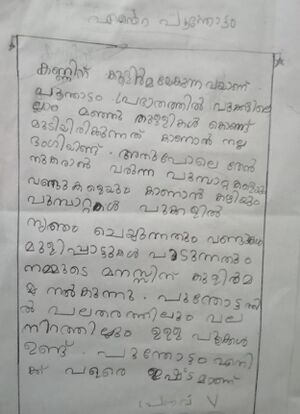 എന്റെ പൂന്തോട്ടം
കണ്ണിന് കുളിർമയേകുന്നവയാണ്
പൂന്തോട്ടം പ്രഭാതത്തിൽ പൂക്കളിലെ
ല്ലാം മഞ്ഞു തുള്ളികൾ കൊണ്ട്
മൂടിയിരിക്കുന്നത് കാണാൻ നല്ല
ഭംഗിയാണ്. അതുപോലെ തേൻ
നുകരാൻ വരുന്ന പൂമ്പാറ്റകളെയും
വണ്ടുകളെയും കാണാൻ കഴിയും
പൂമ്പാറ്റകൾ പൂക്കളിൽ
നൃത്തം ചെയ്യുന്നതും വണ്ടുകൾ
മൂളിപ്പാട്ടുകൾ പാടുന്നതും
നമ്മുടെ മനസ്സിന് കുളിർമ
നൽകുന്നു. പൂന്തോട്ടത്തി
ൽ പലതരത്തിലും പല
നിറത്തിലും ഉള്ള പൂക്കൾ
ഉണ്ട്. പൂന്തോട്ടം എനി
ക്ക് വളരെ ഇഷ്ടമാണ്
V